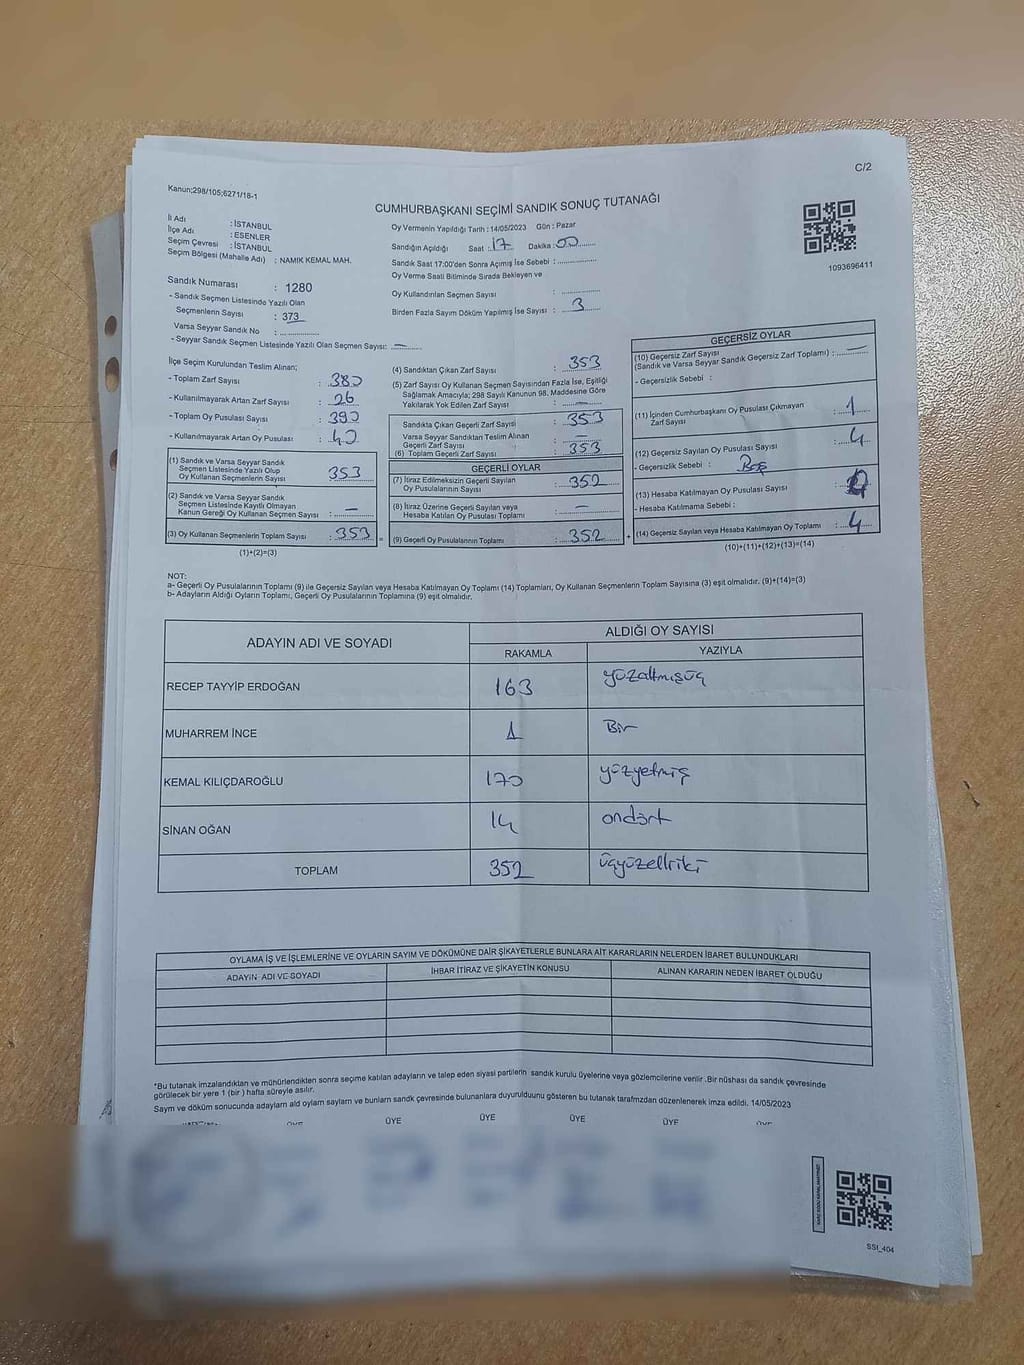 C/2
Kanun;298/105;6271/18-1
CUMHURBAŞKANI SEÇİMİ SANDIK SONUÇ TUTANAĞI
İl Adı : İSTANBUL
İlçe Adı : ESENLER
Seçim Çevresi : İSTANBUL
Seçim Bölgesi (Mahalle Adı) : NAMIK KEMAL MAH.
Oy Vermenin Yapıldığı Tarih : 14/05/2023 Gün : Pazar
Sandığın Açıldığı Saat : 17 Dakika : 00
Sandık Saat 17:00'den Sonra Açımış İse Sebebi :
Oy Verme Saati Bitiminde Sırada Bekleyen ve
Oy Kullandırılan Seçmen Sayısı :
Birden Fazla Sayım Döküm Yapılmış İse Sayısı : 3
1093696411
Sandık Numarası : 1280
- Sandık Seçmen Listesinde Yazılı Olan
Seçmenlerin Sayısı : 373
Varsa Seyyar Sandık No :
- Seyyar Sandık Seçmen Listesinde Yazılı Olan Seçmen Sayısı: —
İlçe Seçim Kurulundan Teslim Alınan;
- Toplam Zarf Sayısı : 380
- Kullanılmayarak Artan Zarf Sayısı : 26
- Toplam Oy Pusulası Sayısı : 390
- Kullanılmayarak Artan Oy Pusulası : 40
(1) Sandık ve Varsa Seyyar Sandık
Seçmen Listesinde Yazılı Olup
Oy Kullanan Seçmenlerin Sayısı 353
(2) Sandık ve Varsa Seyyar Sandık
Seçmen Listesinde Kayıtlı Olmayan
Kanun Gereği Oy Kullanan Seçmen Sayısı : —
(3) Oy Kullanan Seçmenlerin Toplam Sayısı : 353 =
(1)+(2)=(3)
(4) Sandıktan Çıkan Zarf Sayısı : 353
(5) Zarf Sayısı Oy Kullanan Seçmen Sayısından Fazla İse, Eşitliği
Sağlamak Amacıyla; 298 Sayılı Kanunun 98. Maddesine Göre
Yakılarak Yok Edilen Zarf Sayısı : —
Sandıkta Çıkan Geçerli Zarf Sayısı : 353
Varsa Seyyar Sandıktan Teslim Alınan
Geçerli Zarf Sayısı : —
(6) Toplam Geçerli Zarf Sayısı : 353
GEÇERLİ OYLAR
(7) İtiraz Edilmeksizin Geçerli Sayılan
Oy Pusulalarının Sayısı : 352
(8) İtiraz Üzerine Geçerli Sayılan veya
Hesaba Katılan Oy Pusulası Toplamı : —
(9) Geçerli Oy Pusulalarının Toplamı : 352 +
GEÇERSİZ OYLAR
(10) Geçersiz Zarf Sayısı
(Sandık ve Varsa Seyyar Sandık Geçersiz Zarf Toplamı) : —
- Geçersizlik Sebebi :
(11) İçinden Cumhurbaşkanı Oy Pusulası Çıkmayan
Zarf Sayısı : 1
(12) Geçersiz Sayılan Oy Pusulası Sayısı : 4
- Geçersizlik Sebebi : Boş
(13) Hesaba Katılmayan Oy Pusulası Sayısı :
- Hesaba Katılmama Sebebi :
(14) Geçersiz Sayılan veya Hesaba Katılmayan Oy Toplamı : 4
(10)+(11)+(12)+(13)=(14)
NOT:
a- Geçerli Oy Pusulalarının Toplamı (9) ile Geçersiz Sayılan veya Hesaba Katılmayan Oy Toplamı (14) Toplamları, Oy Kullanan Seçmenlerin Toplam Sayısına (3) eşit olmalıdır. (9)+(14)=(3)
b- Adayların Aldığı Oyların Toplamı, Geçerli Oy Pusulalarının Toplamına (9) eşit olmalıdır.
ADAYIN ADI VE SOYADI ALDIĞI OY SAYISI
RAKAMLA YAZIYLA
RECEP TAYYİP ERDOĞAN 163 yüzaltmışüç
MUHARREM İNCE 1 Bir
KEMAL KILIÇDAROĞLU 170 yüzyetmiş
SİNAN OĞAN 14 ondört
TOPLAM 352 üçyüzelliiki
OYLAMA İŞ VE İŞLEMLERİNE VE OYLARIN SAYIM VE DÖKÜMÜNE DAİR ŞİKAYETLERLE BUNLARA AİT KARARLARIN NELERDEN İBARET BULUNDUKLARI
ADAYIN ADI VE SOYADI İHBAR İTİRAZ VE ŞİKAYETİN KONUSU ALINAN KARARIN NEDEN İBARET OLDUĞU
*Bu tutanak imzalandıktan ve mühürlendikten sonra seçime katılan adayların ve talep eden siyasi partilerin sandık kurulu üyelerine veya gözlemcilerine verilir .Bir nüshası da sandık çevresinde
görülecek bir yere 1 (bir) hafta süreyle asılır.
Sayım ve döküm sonucunda adayların ald oyların sayların ve bunların sandk çevresinde bulunanlara duyurulduunu gösteren bu tutanak tarafmzdan düzenlenerek imza edildi. 14/05/2023
ÜYE ÜYE ÜYE ÜYE ÜYE ÜYE
SSt_404